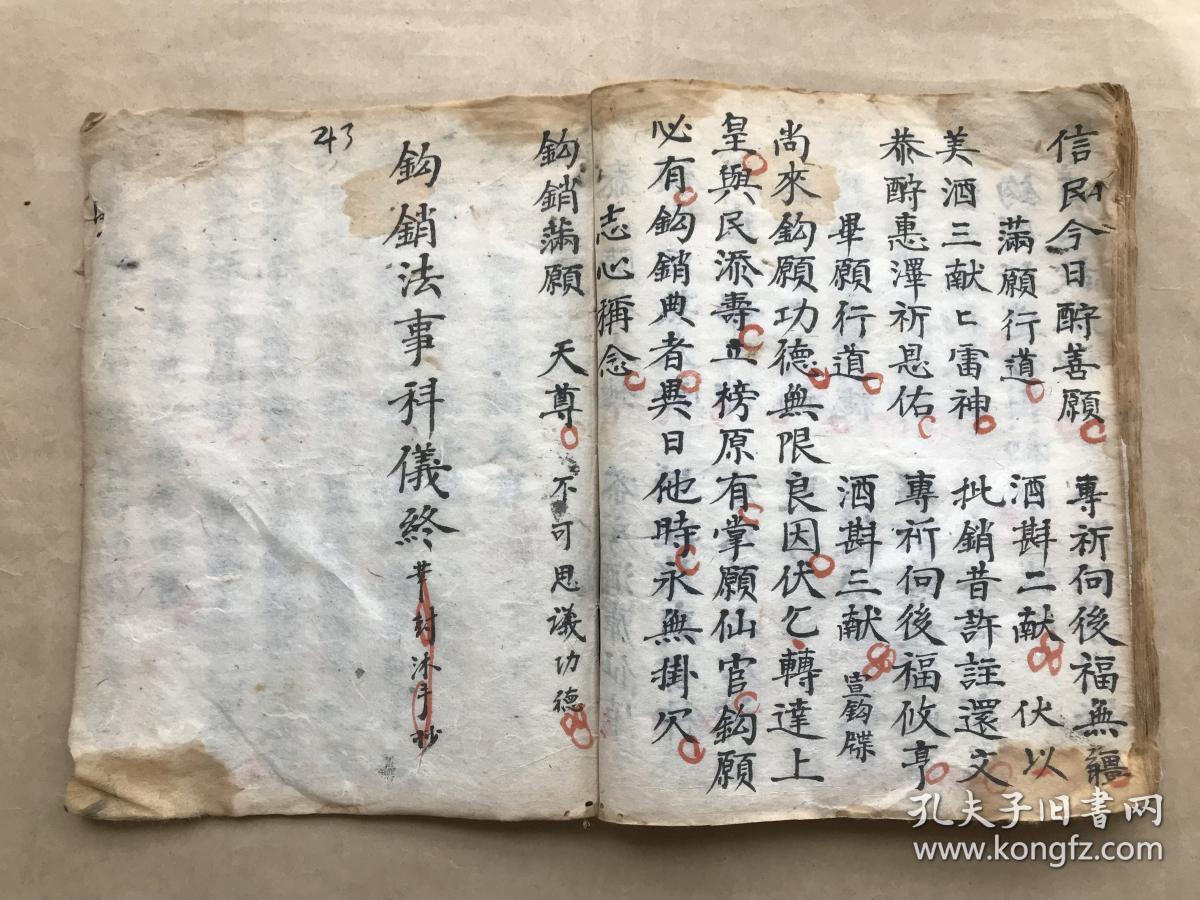 信民今日酧善願 專祈向後福無疆
滿願行道 酒斟二献 伏以
美酒三献匕雷神 批銷昔許註還文
恭酧惠澤祈恩佑 專祈向後福攸亨
畢願行道 酒斟三献 宣鈎牒
尚來鈎願功德無限良因伏乞轉達上
皇與民添壽立榜原有掌願仙官鈎願
必有鈎銷典者異日他時永無掛欠
志心稱念
鈎銷滿願 天尊 不可思議功德
鈎銷法事科儀終 封沐手抄
243
孔夫子旧书网
www.kongfz.com